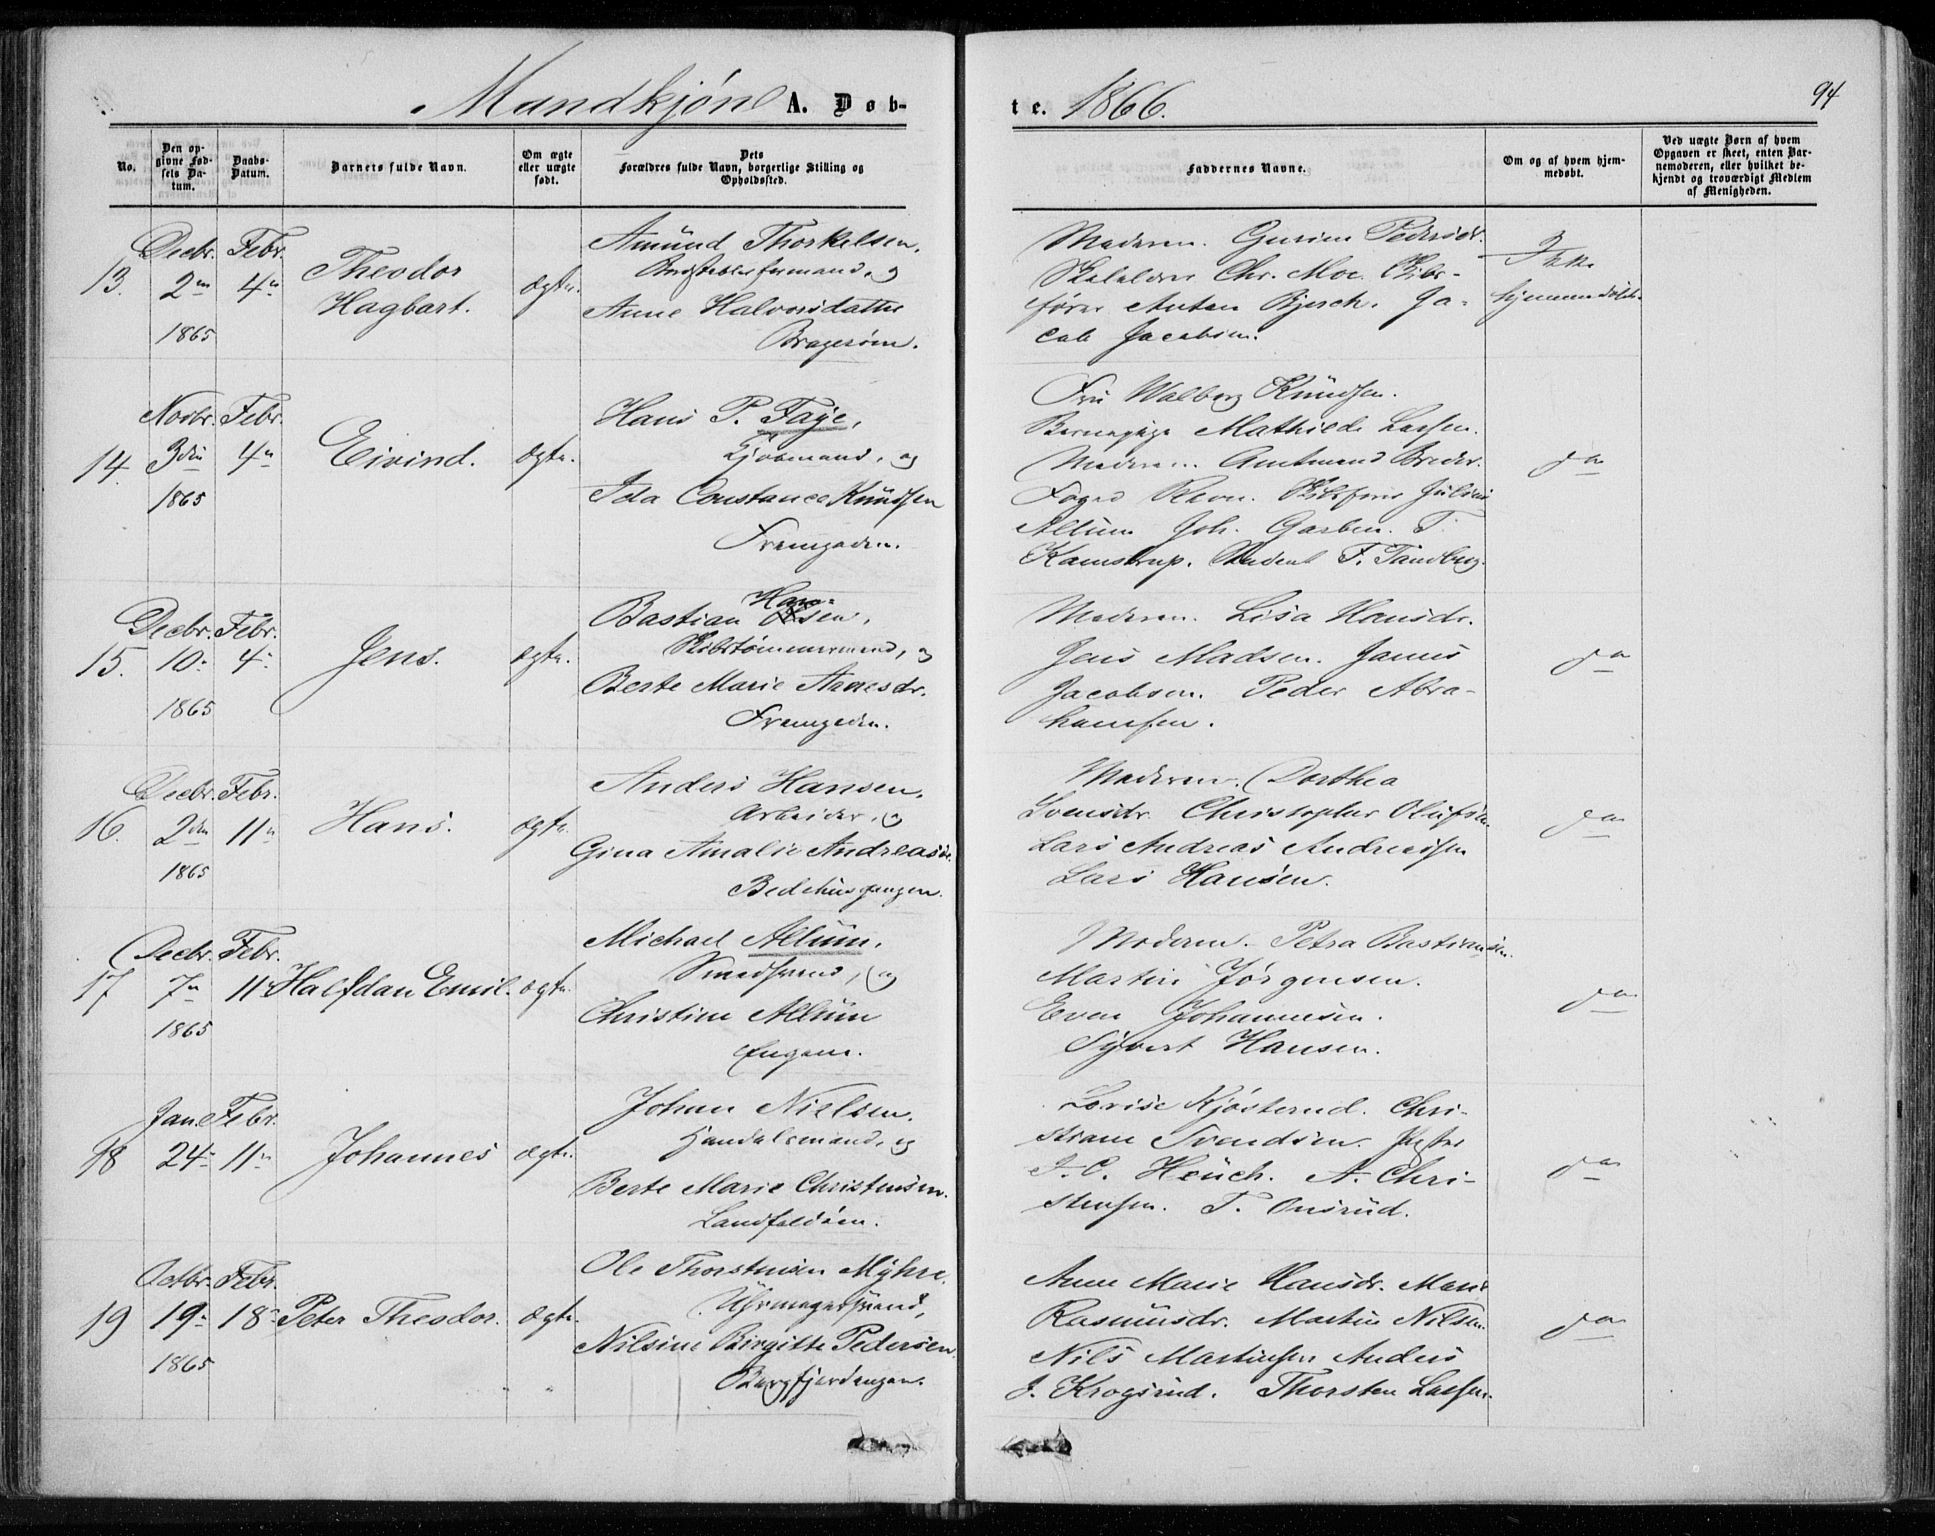 Mandkjøn A. Døb-
te. 1866.
94
No.
Den op-
givne Fød-
sels Da-
tum.
Daabs-
Datum.
Barnets fulde Navn.
Om ægte
eller uægte
født.
Dets
Forældres fulde Navn, borgerlige Stilling og
Opholdssted.
Faddernes Navne.
Om og af hvem hjem-
medøbt.
Ved uægte Børn af hvem
Opgaven er skeet, enten Bar-
nemoderen, eller hvilket be-
kjendt og troværdigt Medlem
af Menigheden.
13.
Decbr.
2den
1865
Febr.
4de
Theodor
Hagbart.
ægte.
Amund Thorkelsen,
og
Anne Halvorsdatter
Bragerøen.
Moderen. Gurine Pedersdr.
Chr. Moe. Skibs-
fører Anton Bjerch. Ja-
cob Jacobsen.
Ikke
hjemmedøbt.
14.
Novbr.
3die
1865
Febr.
4de
Eivind.
ægte.
Hans P. Faye,
Kjøbmand, og
Ida Constance Knudsen
Fremgaden.
Fru Walborg Knudsen.
Mathilde Lassen.
Moderen. Amtmand Breder.
Foged Skibsfører Julius
Allum Joh. Garben. T.
Kamstrup. Student F. Tandberg.
do
15.
Decbr.
10.
1865
Febr.
4.
Jens.
ægte.
Bastian Hansen,
Skibstømmermand, og
Berte Marie Arnesdr.
Fremgaden.
Moderen. Lisa Hansdr.
Jens Madsen. James
Jacobsen. Peder Abra-
hamsen.
do
16.
Decbr.
2den
1865
Febr.
11te
Hans.
ægte.
Anders Hansen,
Arbeider, og
Gina Amalie Andreasdr.
Bedehusgangen.
Moderen. Dorthea
Svensdr. Christopher Olufsen.
Lars Andreas Andreassen
Lars Hansen.
do
17
Decbr.
7de
1865
Febr.
11te
Halfdan Emil.
ægte.
Michael Allum,
Smedsvend, og
Christine Allum
Engene.
Moderen. Petra Bastiansen.
Martin Jørgensen.
Even Johannesen.
Syvert Hansen.
do
18
Jan.
24.
Febr.
11te
Johannes
ægte.
Johan Nielsen,
Handelsmand, og
Berte Marie Christensen.
Landfaldøen.
Lovise Kjøsterud. Chri-
stiane Svendsen.
J. C. Heuch. A. Chri-
stensen. T. Onsrud.
do
19
Octbr.
19.
1865
Febr.
18.
Peter Theodor.
ægte.
Ole Thorstensen Myhre,
Uhrmagersvend,
Nilsine Birgitte Pedersen.
Bergfjerdingen.
Anne Marie Hansdr. Maria
Rasmusdr. Martin Nilsen.
Nils Martinsen Anders
J. Krogsrud. Thorsten Larsen.
do